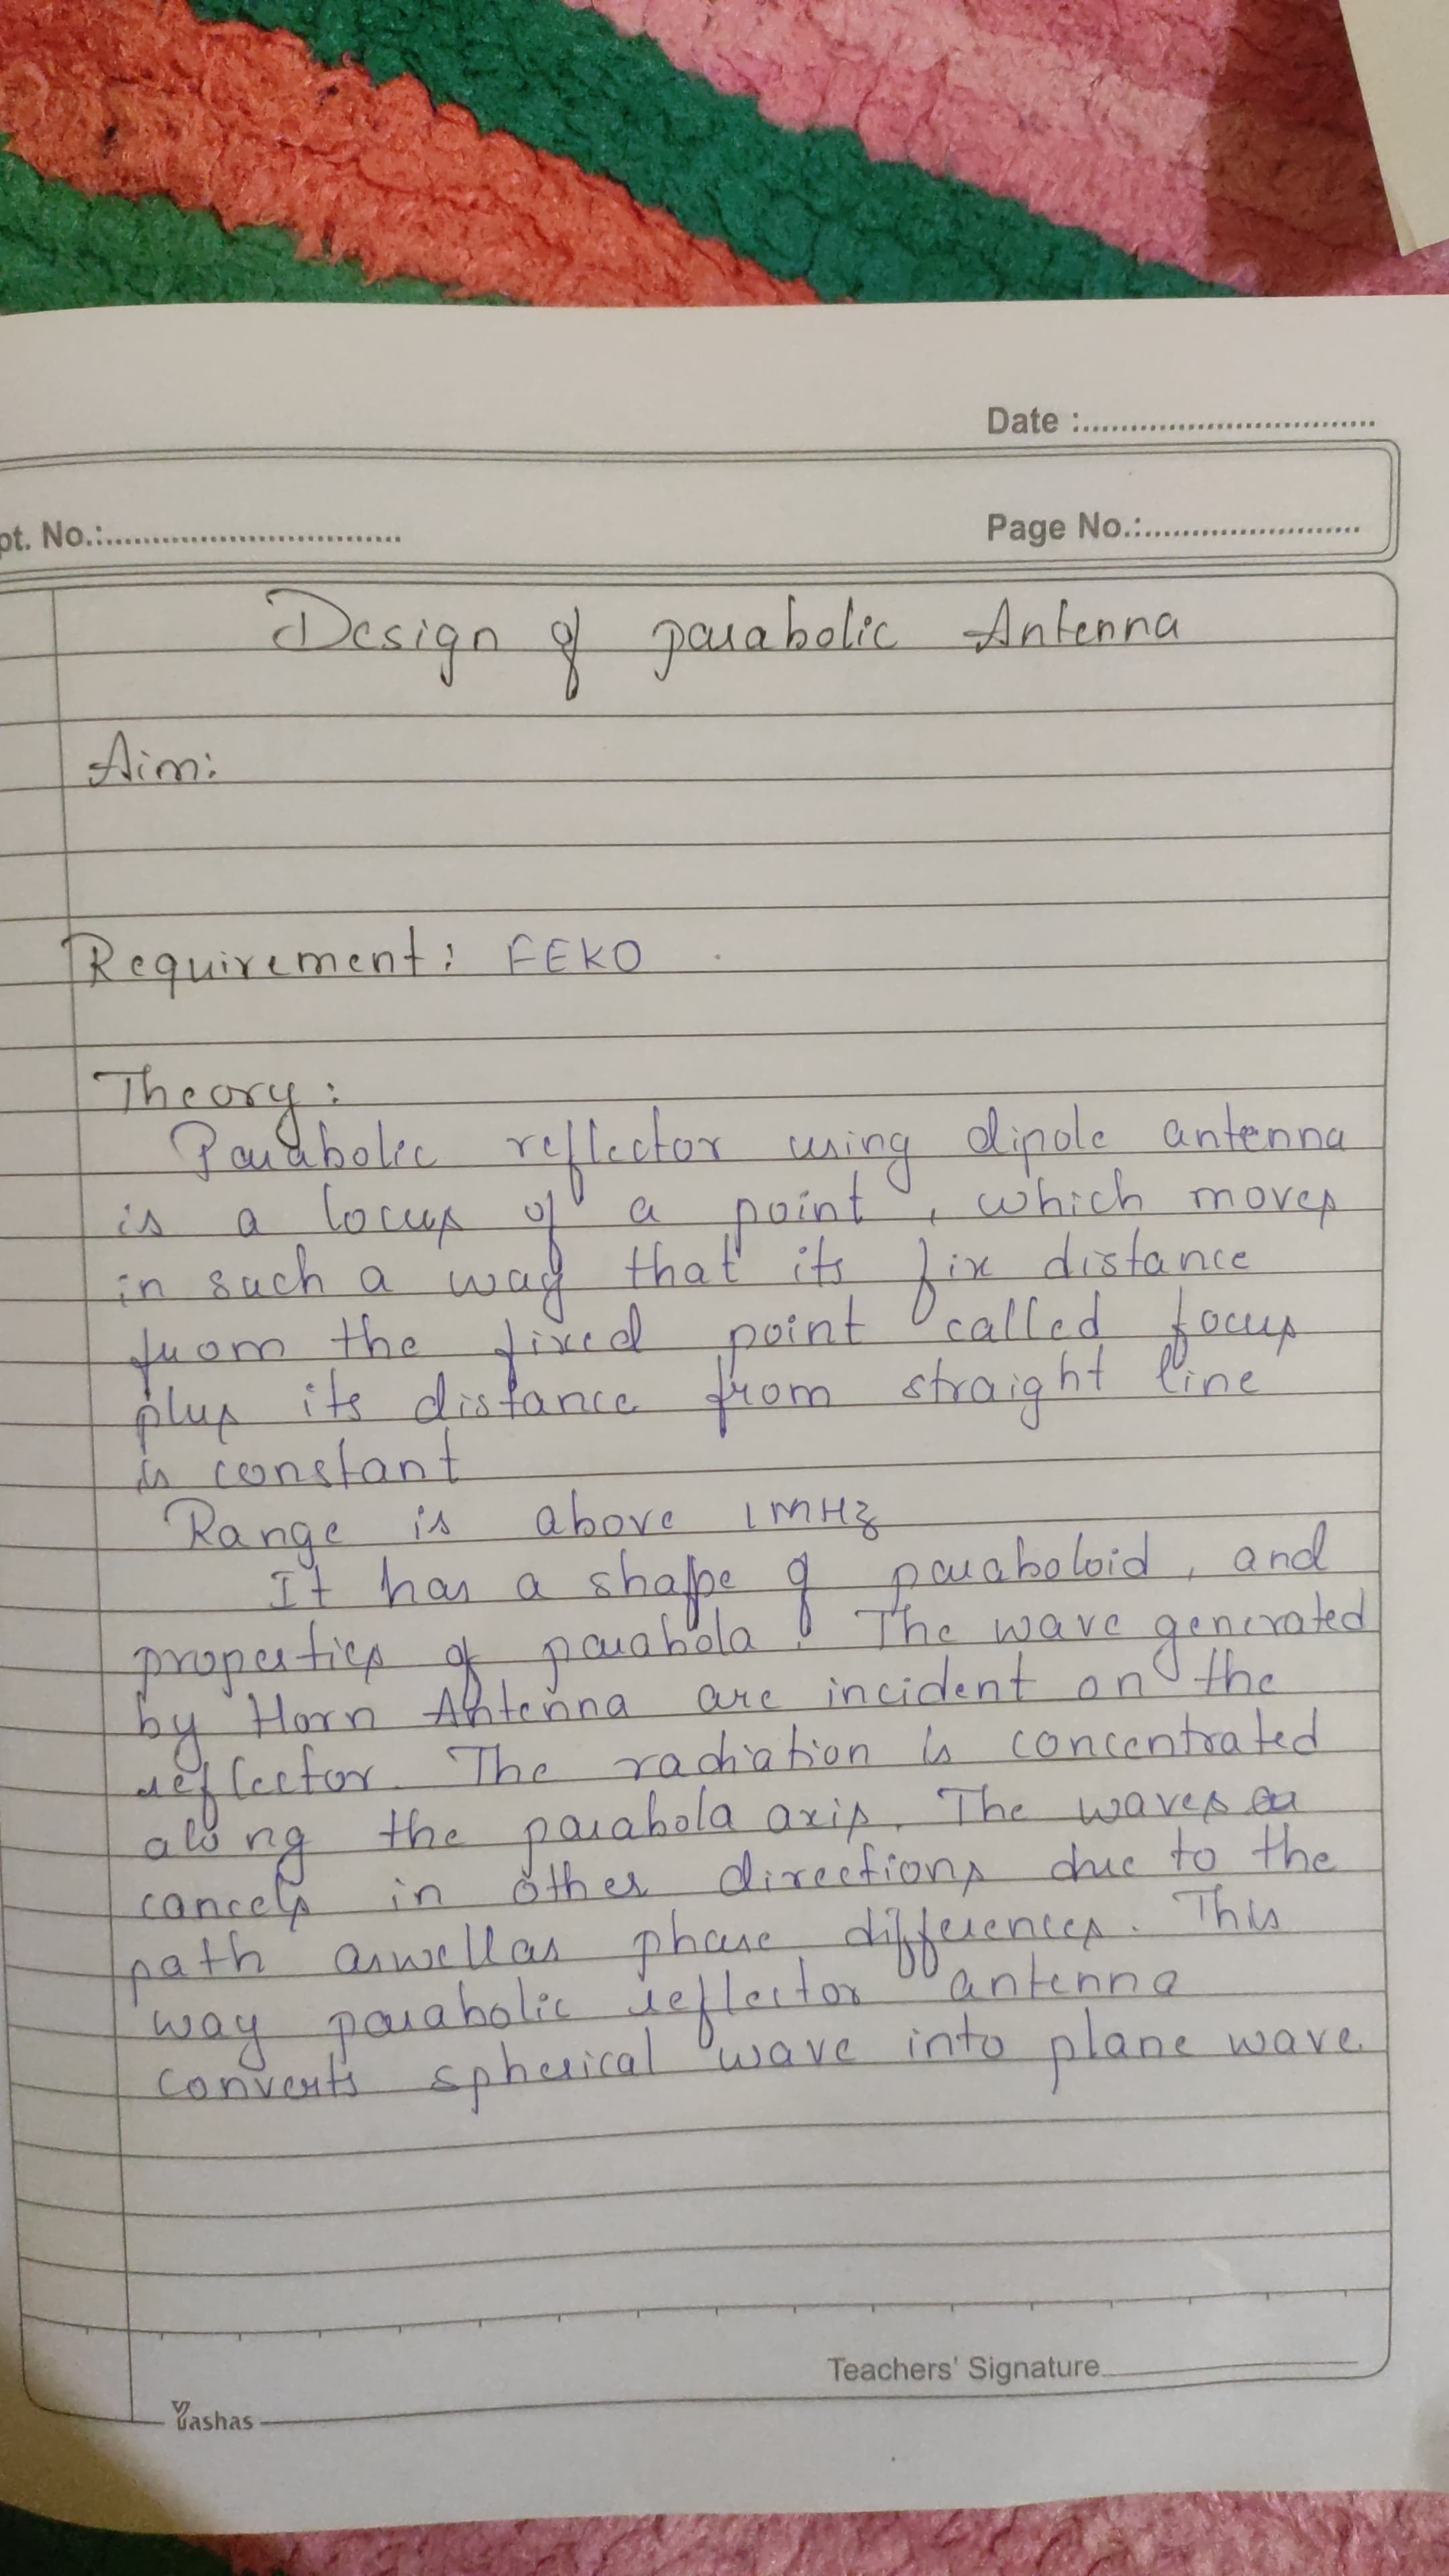 Date :..............................
pt. No.:..............................
Page No.:......................
Design of parabolic Antenna
Aim:
Requirement: FEKO
Theory:
Parabolic reflector using dipole antenna
is a locus of a point, which moves
in such a way that its fix distance
from the fixed point called focus
plus its distance from straight line
is constant
Range is above 1MHz
It has a shape of paraboloid, and
properties of parabola. The wave generated
by Horn Antenna are incident on the
reflector. The radiation is concentrated
along the parabola axis. The waves
cancels in other directions due to the
path aswellas phase differences. This
way parabolic reflector antenna
converts spherical wave into plane wave.
Teachers' Signature
Yashas